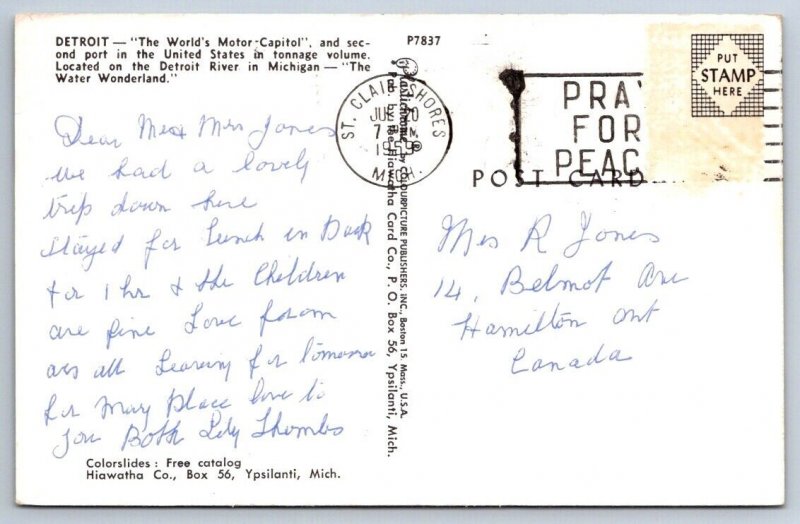 DETROIT — "The World's Motor Capitol", and sec-
ond port in the United States in tonnage volume.
Located on the Detroit River in Michigan — "The
Water Wonderland."
P7837
ST. CLAIR SHORES
JUL 20
7 PM
1959
MICH.
PRAY
FOR
PEAC
PUT
STAMP
HERE
POST CARD
Dear Mr & Mrs Jones
we had a lovely
trip down here
stayed for Lunch in Park
for 1 hr & the Children
are fine Love from
all Leaving for Tomorrow
for May Place love to
you Both Lily Thombs
Plastichrome by COLOURPICTURE PUBLISHERS, INC., Boston 15, Mass., U.S.A.
Pub. by The Hiawatha Card Co., P. O. Box 56, Ypsilanti, Mich.
Mrs R Jones
14, Belmot Ave
Hamilton Ont
Canada
Colorslides: Free catalog
Hiawatha Co., Box 56, Ypsilanti, Mich.